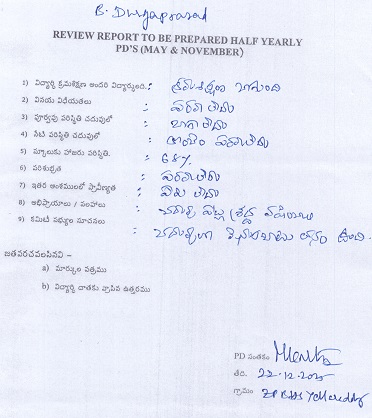 B. Durgaprasad
REVIEW REPORT TO BE PREPARED HALF YEARLY
PD'S (MAY & NOVEMBER)
1) విద్యార్థి క్రమశిక్షణ అందరి విద్యార్థులది. : క్రమశిక్షణ బాగుంది
2) వినయ విధేయతలు : పరవాలేదు
3) పూర్వపు పరిస్థితి చదువులో : బాగా లేదు
4) నేటి పరిస్థితి చదువులో : పరవాలేదు
5) స్కూలుకు హాజరు పరిస్థితి. : 68%
6) పరిశుభ్రత : పరవాలేదు
7) ఇతర అంశములలో ప్రావీణ్యత : ఏమి లేదు
8) అభిప్రాయాలు / సలహాలు : చదువు పట్ల శ్రద్ధ
9) కమిటీ సభ్యుల సూచనలు : ఉంది.
జతపరచవలసినవి –
a) మార్కుల పత్రము
b) విద్యార్థి దాతకు వ్రాసిన ఉత్తరము
PD సంతకం
తేది. 22-12-2025
గ్రామం Yellareddy